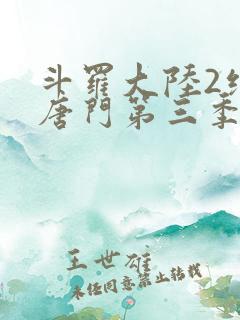 斗羅大陸2
唐門第三季
王世雄
未经同意禁止转载